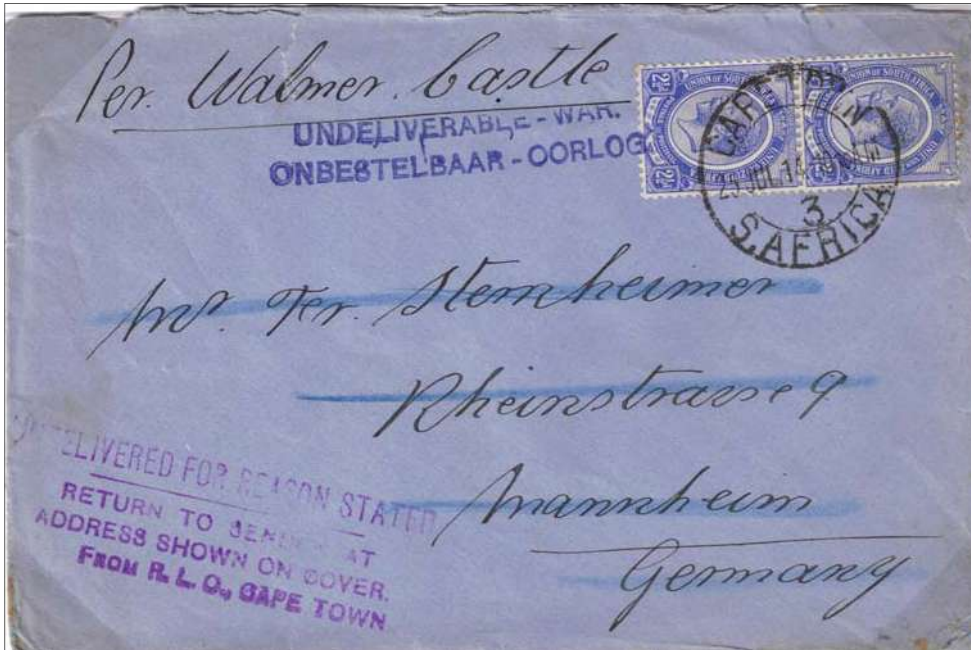 Per. Walmer. Castle
UNDELIVERABLE - WAR.
ONBESTELBAAR - OORLOG
UNION OF SOUTH AFRICA
2½ᵈ
CAPE TOWN
JUL 14
3
S. AFRICA
Mr. Fer. Sternheimer
Rheinstrasse 9
Mannheim
Germany
UNDELIVERED FOR REASON STATED
RETURN TO SENDER AT
ADDRESS SHOWN ON COVER.
FROM R. L. O., CAPE TOWN